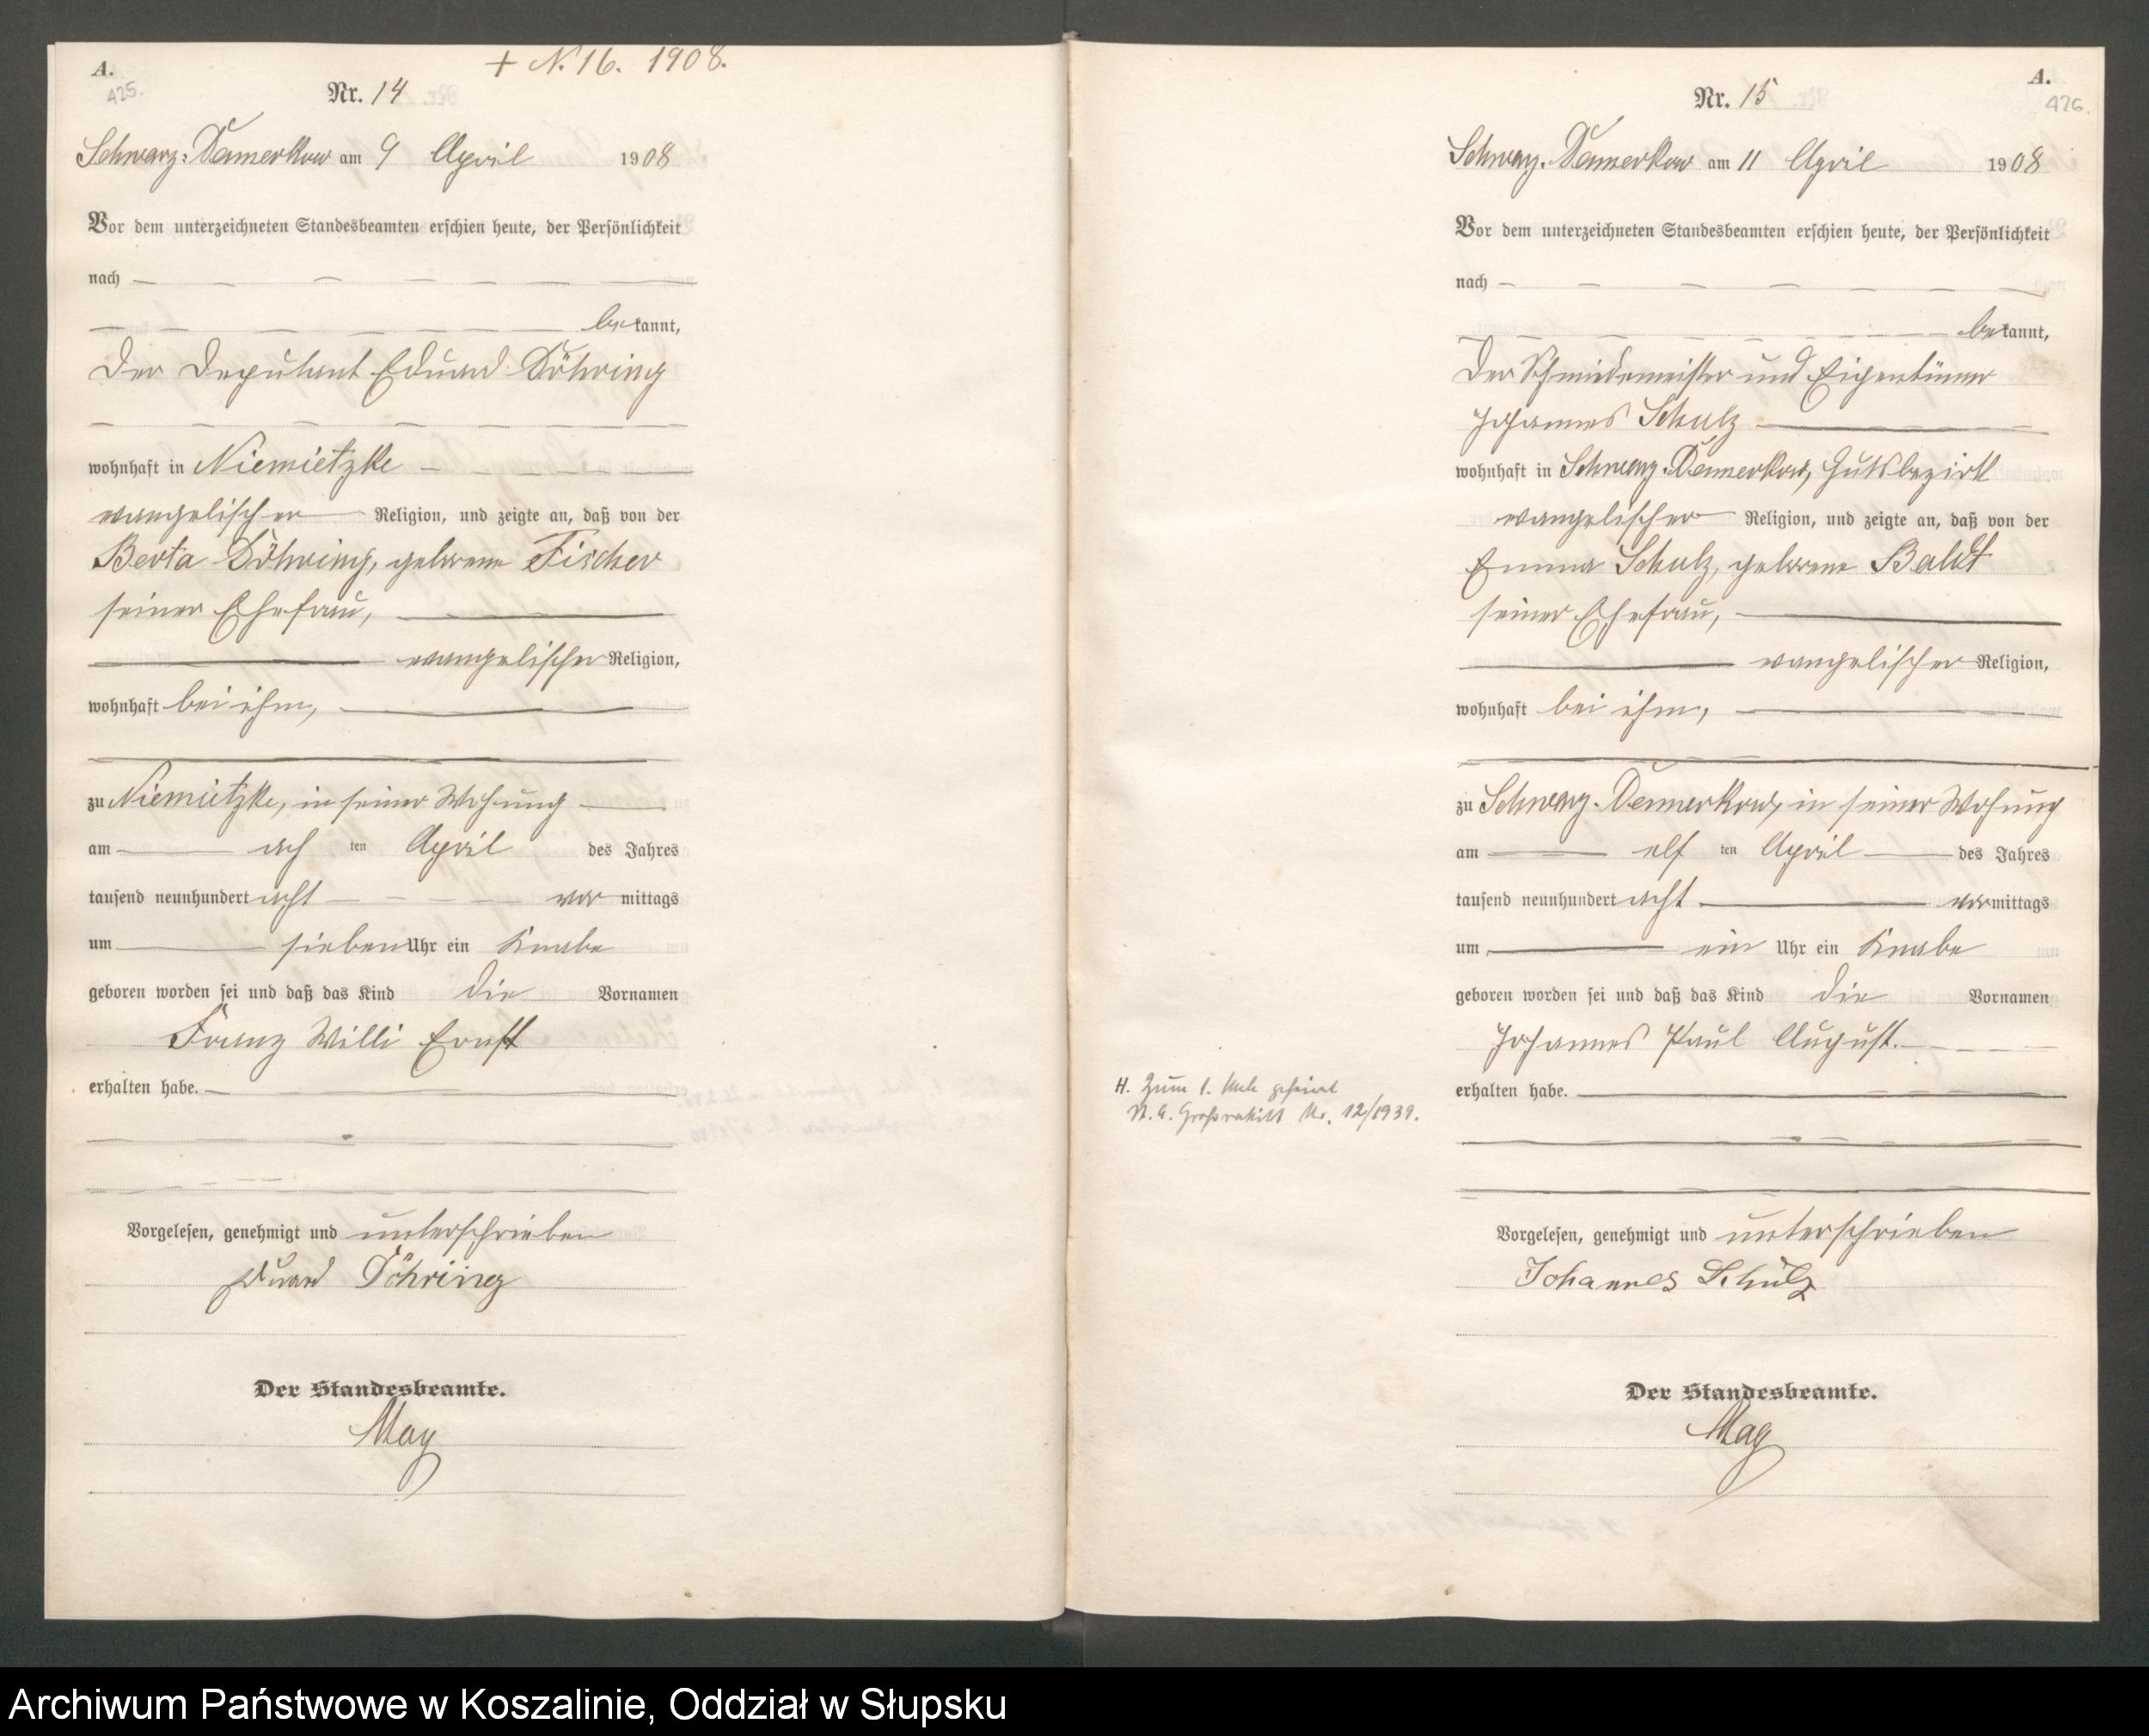 A.
425.
+ N. 16. 1908.
Nr. 14
Schwarz-Damerkow am 9 April 1908
Vor dem unterzeichneten Standesbeamten erschien heute, der Persönlichkeit
nach
bekannt,
Der Deputant Eduard Döhring
wohnhaft in Niemietzke
evangelischer Religion, und zeigte an, daß von der
Berta Döhring, geborene Fischer
seiner Ehefrau,
evangelischer Religion,
wohnhaft bei ihm,
zu Niemietzke, in seiner Wohnung
am ach ten April des Jahres
tausend neunhundert acht vor mittags
um sieben Uhr ein Knabe
geboren worden sei und daß das Kind die Vornamen
Franz Willi Ernst
erhalten habe.
Vorgelesen, genehmigt und unterschrieben
Eduard Döhring
Der Standesbeamte.
May
A.
426.
Nr. 15
Schwarz-Damerkow am 11 April 1908
Vor dem unterzeichneten Standesbeamten erschien heute, der Persönlichkeit
nach
bekannt,
Der Schmiedemeister und Eigentümer
Johannes Schulz
wohnhaft in Schwarz-Damerkow, Gutsbezirk
evangelischer Religion, und zeigte an, daß von der
Emma Schulz, geborene Baldt
seiner Ehefrau,
evangelischer Religion,
wohnhaft bei ihm,
zu Schwarz-Damerkow, in seiner Wohnung
am elf ten April des Jahres
tausend neunhundert acht vormittags
um ein Uhr ein Knabe
geboren worden sei und daß das Kind die Vornamen
Johannes Paul August.
erhalten habe.
H. Zum 1. Male geheirat
St. A. Großrakitt Nr. 12/1939.
Vorgelesen, genehmigt und unterschrieben
Johannes Schulz
Der Standesbeamte.
May
Archiwum Państwowe w Koszalinie, Oddział w Słupsku